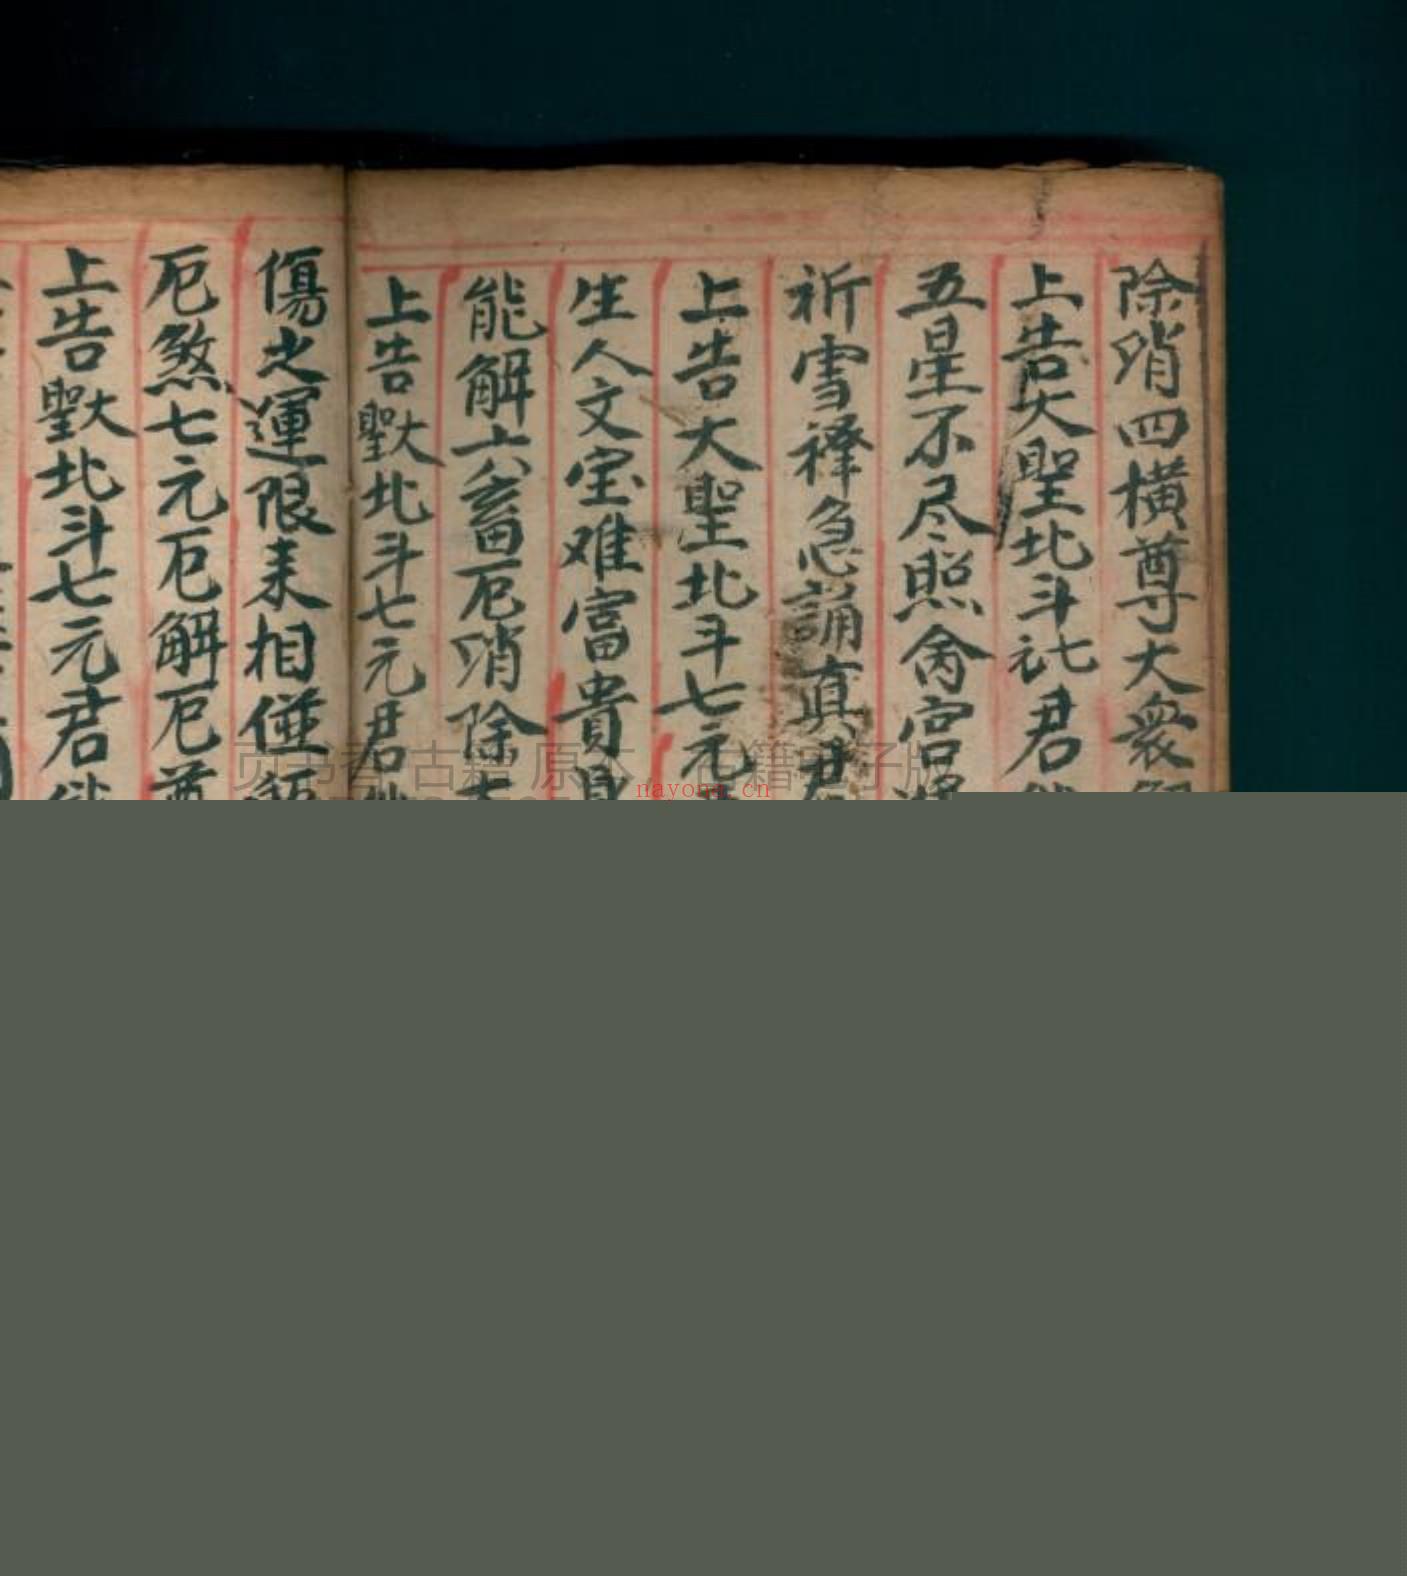 除消四橫尊大衆解
上告大聖北斗七元君
五星不尽照禽宮
祈雪禳急誦真君
上告大聖北斗七元
生人文宝难富貴
能解六畜厄消除
上告大聖北斗七元君
傷之運限来相
厄煞七元厄解厄尊
上告大聖北斗七元君
古籍 原本 古籍 子版
nayona.cn